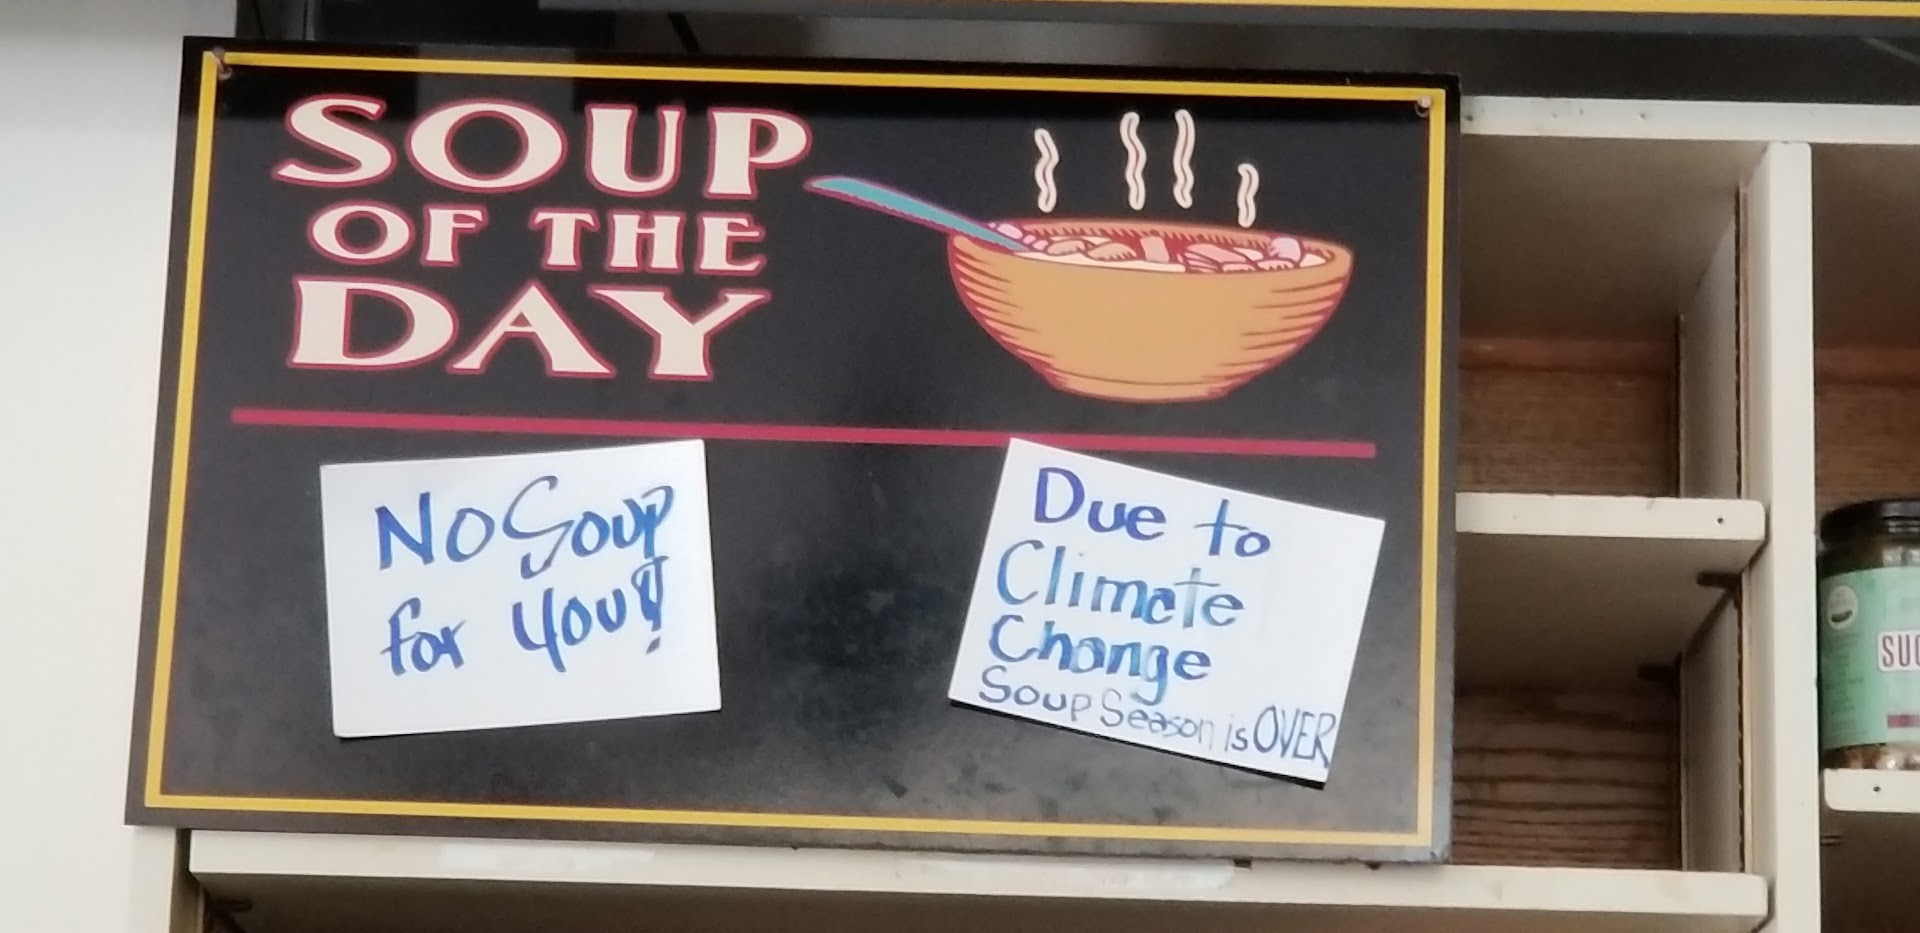 SOUP
OF THE
DAY
No Soup
for you!
Due to
Climate
Change
Soup Season is OVER